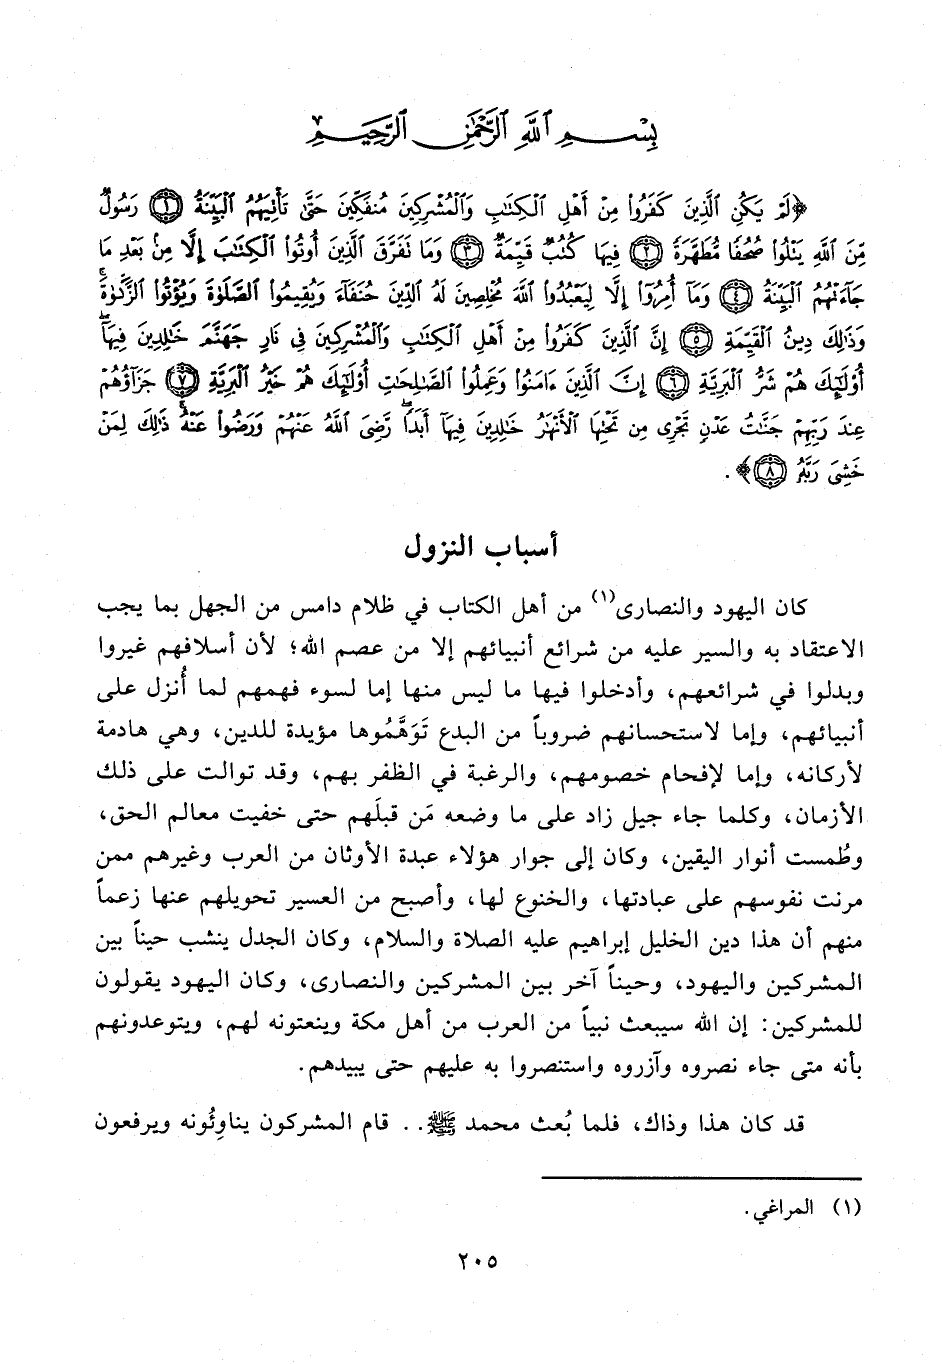 بِسْمِ ٱللَّهِ ٱلرَّحْمَٰنِ ٱلرَّحِيمِ
﴿لَمْ يَكُنِ ٱلَّذِينَ كَفَرُوا۟ مِنْ أَهْلِ ٱلْكِتَٰبِ وَٱلْمُشْرِكِينَ مُنفَكِّينَ حَتَّىٰ تَأْتِيَهُمُ ٱلْبَيِّنَةُ ۝١ رَسُولٌ
مِّنَ ٱللَّهِ يَتْلُوا۟ صُحُفًا مُّطَهَّرَةً ۝٢ فِيهَا كُتُبٌ قَيِّمَةٌ ۝٣ وَمَا تَفَرَّقَ ٱلَّذِينَ أُوتُوا۟ ٱلْكِتَٰبَ إِلَّا مِنۢ بَعْدِ مَا
جَآءَتْهُمُ ٱلْبَيِّنَةُ ۝٤ وَمَآ أُمِرُوٓا۟ إِلَّا لِيَعْبُدُوا۟ ٱللَّهَ مُخْلِصِينَ لَهُ ٱلدِّينَ حُنَفَآءَ وَيُقِيمُوا۟ ٱلصَّلَوٰةَ وَيُؤْتُوا۟ ٱلزَّكَوٰةَۚ
وَذَٰلِكَ دِينُ ٱلْقَيِّمَةِ ۝٥ إِنَّ ٱلَّذِينَ كَفَرُوا۟ مِنْ أَهْلِ ٱلْكِتَٰبِ وَٱلْمُشْرِكِينَ فِى نَارِ جَهَنَّمَ خَٰلِدِينَ فِيهَآۚ
أُو۟لَٰٓئِكَ هُمْ شَرُّ ٱلْبَرِيَّةِ ۝٦ إِنَّ ٱلَّذِينَ ءَامَنُوا۟ وَعَمِلُوا۟ ٱلصَّٰلِحَٰتِ أُو۟لَٰٓئِكَ هُمْ خَيْرُ ٱلْبَرِيَّةِ ۝٧ جَزَآؤُهُمْ
عِندَ رَبِّهِمْ جَنَّٰتُ عَدْنٍ تَجْرِى مِن تَحْتِهَا ٱلْأَنْهَٰرُ خَٰلِدِينَ فِيهَآ أَبَدًاۖ رَّضِىَ ٱللَّهُ عَنْهُمْ وَرَضُوا۟ عَنْهُۚ ذَٰلِكَ لِمَنْ
خَشِىَ رَبَّهُۥ ۝٨﴾.
أسباب النزول
كان اليهود والنصارى(١) من أهل الكتاب في ظلام دامس من الجهل بما يجب
الاعتقاد به والسير عليه من شرائع أنبيائهم إلا من عصم الله؛ لأن أسلافهم غيروا
وبدلوا في شرائعهم، وأدخلوا فيها ما ليس منها إما لسوء فهمهم لما أُنزل على
أنبيائهم، وإما لاستحسانهم ضروباً من البدع تَوَهَّمُوها مؤيدة للدين، وهي هادمة
لأركانه، وإما لإفحام خصومهم، والرغبة في الظفر بهم، وقد توالت على ذلك
الأزمان، وكلما جاء جيل زاد على ما وضعه مَن قبلَهم حتى خفيت معالم الحق،
وطُمست أنوار اليقين، وكان إلى جوار هؤلاء عبدة الأوثان من العرب وغيرهم ممن
مرنت نفوسهم على عبادتها، والخنوع لها، وأصبح من العسير تحويلهم عنها زعماً
منهم أن هذا دين الخليل إبراهيم عليه الصلاة والسلام، وكان الجدل ينشب حيناً بين
المشركين واليهود، وحيناً آخر بين المشركين والنصارى، وكان اليهود يقولون
للمشركين: إن الله سيبعث نبياً من العرب من أهل مكة وينعتونه لهم، ويتوعدونهم
بأنه متى جاء نصروه وآزروه واستنصروا به عليهم حتى يبيدهم.
قد كان هذا وذاك، فلما بُعث محمد ﷺ.. قام المشركون يناوِئُونه ويرفعون
(١) المراغي.
٢٠٥